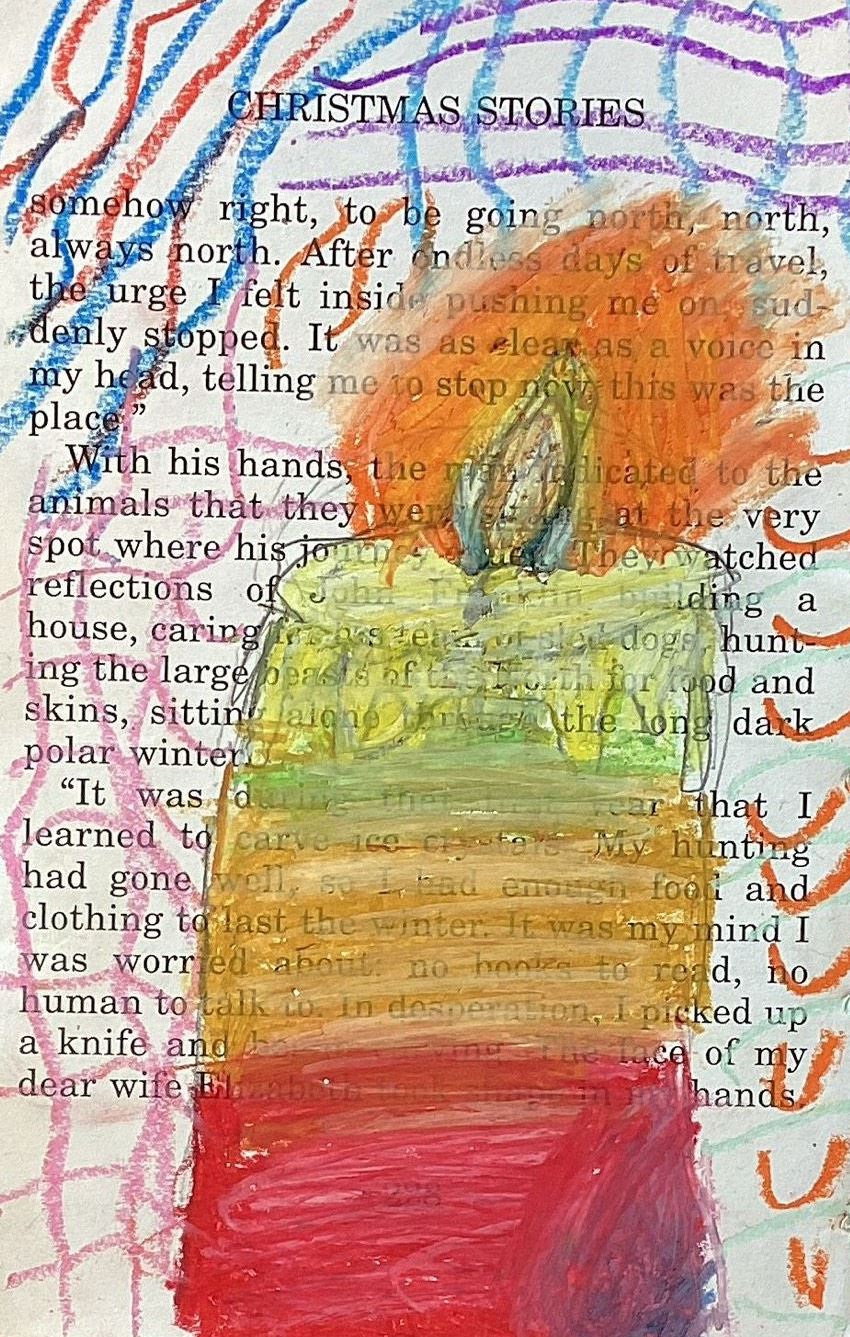 CHRISTMAS STORIES
somehow right, to be going north, north,
always north. After endless days of travel,
the urge I felt inside pushing me on, sud-
denly stopped. It was as clear as a voice in
my head, telling me to stop now, this was the
place.”
With his hands, the man indicated to the
animals that they were at the very
spot where his journey They watched
reflections of John Franklin building a
house, caring for his team of sled dogs, hunt-
ing the large beasts of the North for food and
skins, sitting alone through the long dark
polar winter.
“It was during that year that I
learned to carve ice crystals. My hunting
had gone well, so I had enough food and
clothing to last the winter. It was my mind I
was worried about: no books to read, no
human to talk to. In desperation, I picked up
a knife and began carving. The face of my
dear wife Elizabeth took shape in my hands.
238